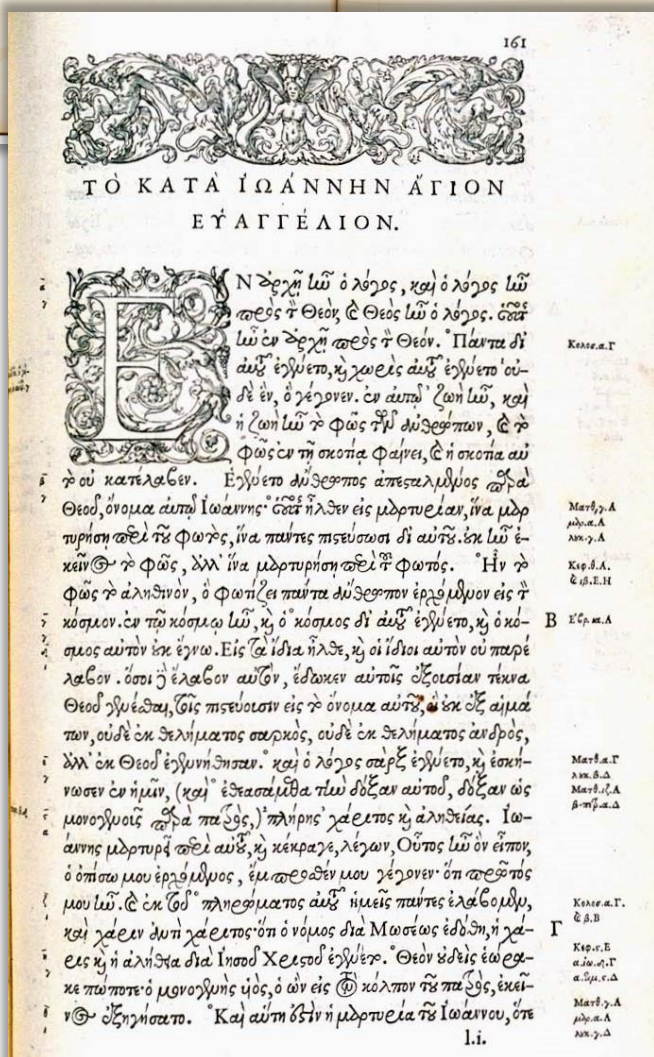 161
ΤῸ ΚΑΤᾺ ἸΩΆΝΝΗΝ ἍΓΙΟΝ
ΕΥ̓ΑΓΓΈΛΙΟΝ.
ΕΝ ἀρχῇ ἦν ὁ λόγος, καὶ ὁ λόγος ἦν
πρὸς τὸν Θεόν, καὶ Θεὸς ἦν ὁ λόγος. οὗτος
ἦν ἐν ἀρχῇ πρὸς τὸν Θεόν. Πάντα δι'
αὐτοῦ ἐγένετο, καὶ χωρὶς αὐτοῦ ἐγένετο οὐ-
δὲ ἓν, ὃ γέγονεν. ἐν αὐτῷ ζωὴ ἦν, καὶ
ἡ ζωὴ ἦν τὸ φῶς τῶν ἀνθρώπων, καὶ τὸ
φῶς ἐν τῇ σκοτίᾳ φαίνει, καὶ ἡ σκοτία αὐ
τὸ οὐ κατέλαβεν. Ἐγένετο ἄνθρωπος ἀπεσταλμένος παρὰ
Θεοῦ, ὄνομα αὐτῷ Ἰωάννης· οὗτος ἦλθεν εἰς μαρτυρίαν, ἵνα μαρ
τυρήσῃ περὶ τοῦ φωτός, ἵνα πάντες πιστεύσωσι δι' αὐτοῦ. οὐκ ἦν ἐ-
κεῖνος τὸ φῶς, ἀλλ' ἵνα μαρτυρήσῃ περὶ τοῦ φωτός. Ἦν τὸ
φῶς τὸ ἀληθινόν, ὃ φωτίζει πάντα ἄνθρωπον ἐρχόμενον εἰς τὸν
κόσμον. ἐν τῷ κόσμῳ ἦν, καὶ ὁ κόσμος δι' αὐτοῦ ἐγένετο, καὶ ὁ κό-
σμος αὐτὸν οὐκ ἔγνω. Εἰς τὰ ἴδια ἦλθε, καὶ οἱ ἴδιοι αὐτὸν οὐ παρέ
λαβον. ὅσοι δὲ ἔλαβον αὐτόν, ἔδωκεν αὐτοῖς ἐξουσίαν τέκνα
Θεοῦ γενέσθαι, τοῖς πιστεύουσιν εἰς τὸ ὄνομα αὐτοῦ, οἳ οὐκ ἐξ αἱμά
των, οὐδὲ ἐκ θελήματος σαρκός, οὐδὲ ἐκ θελήματος ἀνδρός,
ἀλλ' ἐκ Θεοῦ ἐγεννήθησαν. καὶ ὁ λόγος σὰρξ ἐγένετο, καὶ ἐσκή-
νωσεν ἐν ἡμῖν, (καὶ ἐθεασάμεθα τὴν δόξαν αὐτοῦ, δόξαν ὡς
μονογενοῦς παρὰ πατρός,) πλήρης χάριτος καὶ ἀληθείας. Ἰω-
άννης μαρτυρεῖ περὶ αὐτοῦ, καὶ κέκραγε, λέγων, Οὗτος ἦν ὃν εἶπον,
ὁ ὀπίσω μου ἐρχόμενος, ἔμπροσθέν μου γέγονεν· ὅτι πρῶτός
μου ἦν. καὶ ἐκ τοῦ πληρώματος αὐτοῦ ἡμεῖς πάντες ἐλάβομεν,
καὶ χάριν ἀντὶ χάριτος· ὅτι ὁ νόμος διὰ Μωσέως ἐδόθη, ἡ χά-
ρις καὶ ἡ ἀλήθεια διὰ Ἰησοῦ Χριστοῦ ἐγένετο. Θεὸν οὐδεὶς ἑώρα-
κε πώποτε· ὁ μονογενὴς υἱός, ὁ ὢν εἰς τὸν κόλπον τοῦ πατρός, ἐκεῖ-
νος ἐξηγήσατο. Καὶ αὕτη ἐστὶν ἡ μαρτυρία τοῦ Ἰωάννου, ὅτε
l.i.
Κολοσ.α.Γ
Ματθ.γ.Α
μάρ.α.Α
λυκ.γ.Α
Κεφ.θ.Α.
καὶ ιβ.Ε.Η
Β Ἑβρ.ια.Α
Ματθ.α.Γ
λυκ.β.Δ
Ματθ.ιζ.Α
β.πέτρ.α.Δ
Κολοσ.α.Γ.
καὶ β.Β
Γ
Κεφ.ς.Ε
α.ἰω.δ.Γ
α.τιμ.ς.Δ
Ματθ.γ.Α
μάρ.α.Α
λυκ.γ.Δ